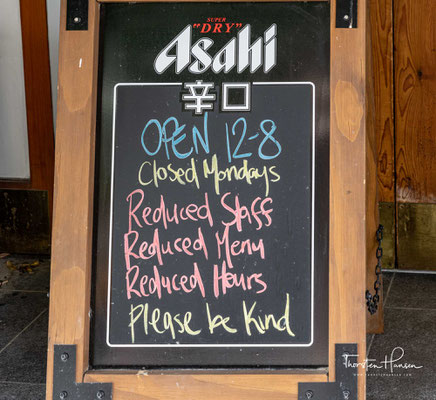 SUPER
"DRY"
Asahi
辛口
OPEN 12-8
Closed Mondays
Reduced Staff
Reduced Menu
Reduced Hours
Please be Kind
Thorsten Hansen